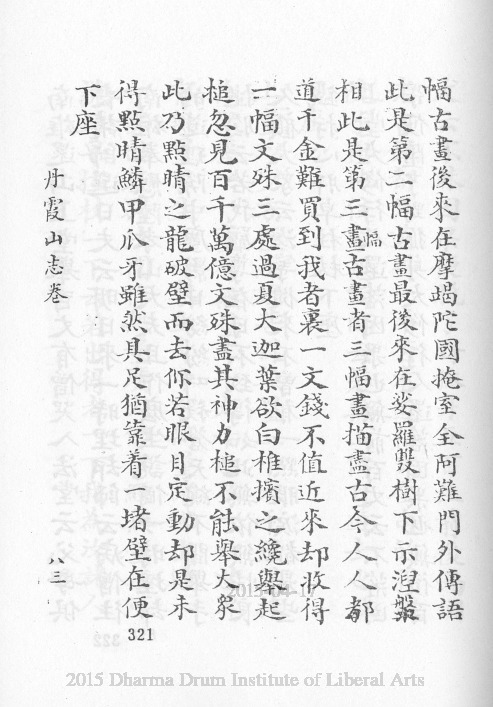 幅古畫後來在摩竭陀國掩室全阿難門外傳語
此是第二幅古畫最後來在娑羅雙樹下示湼槃
相此是第三畫古畫者三幅畫描盡古今人人都
幅
道千金難買到我者裏一文錢不值近來却收得
一幅文殊三處過夏大迦葉欲白椎擯之纔舉起
槌忽見百千萬億文殊盡其神力槌不能舉大衆
此乃點睛之龍破壁而去你若眼目定動却是未
得點睛鱗甲爪牙雖然具足猶靠着一堵壁在便
下座
丹霞山志卷
八三
321
2015 Dharma Drum Institute of Liberal Arts